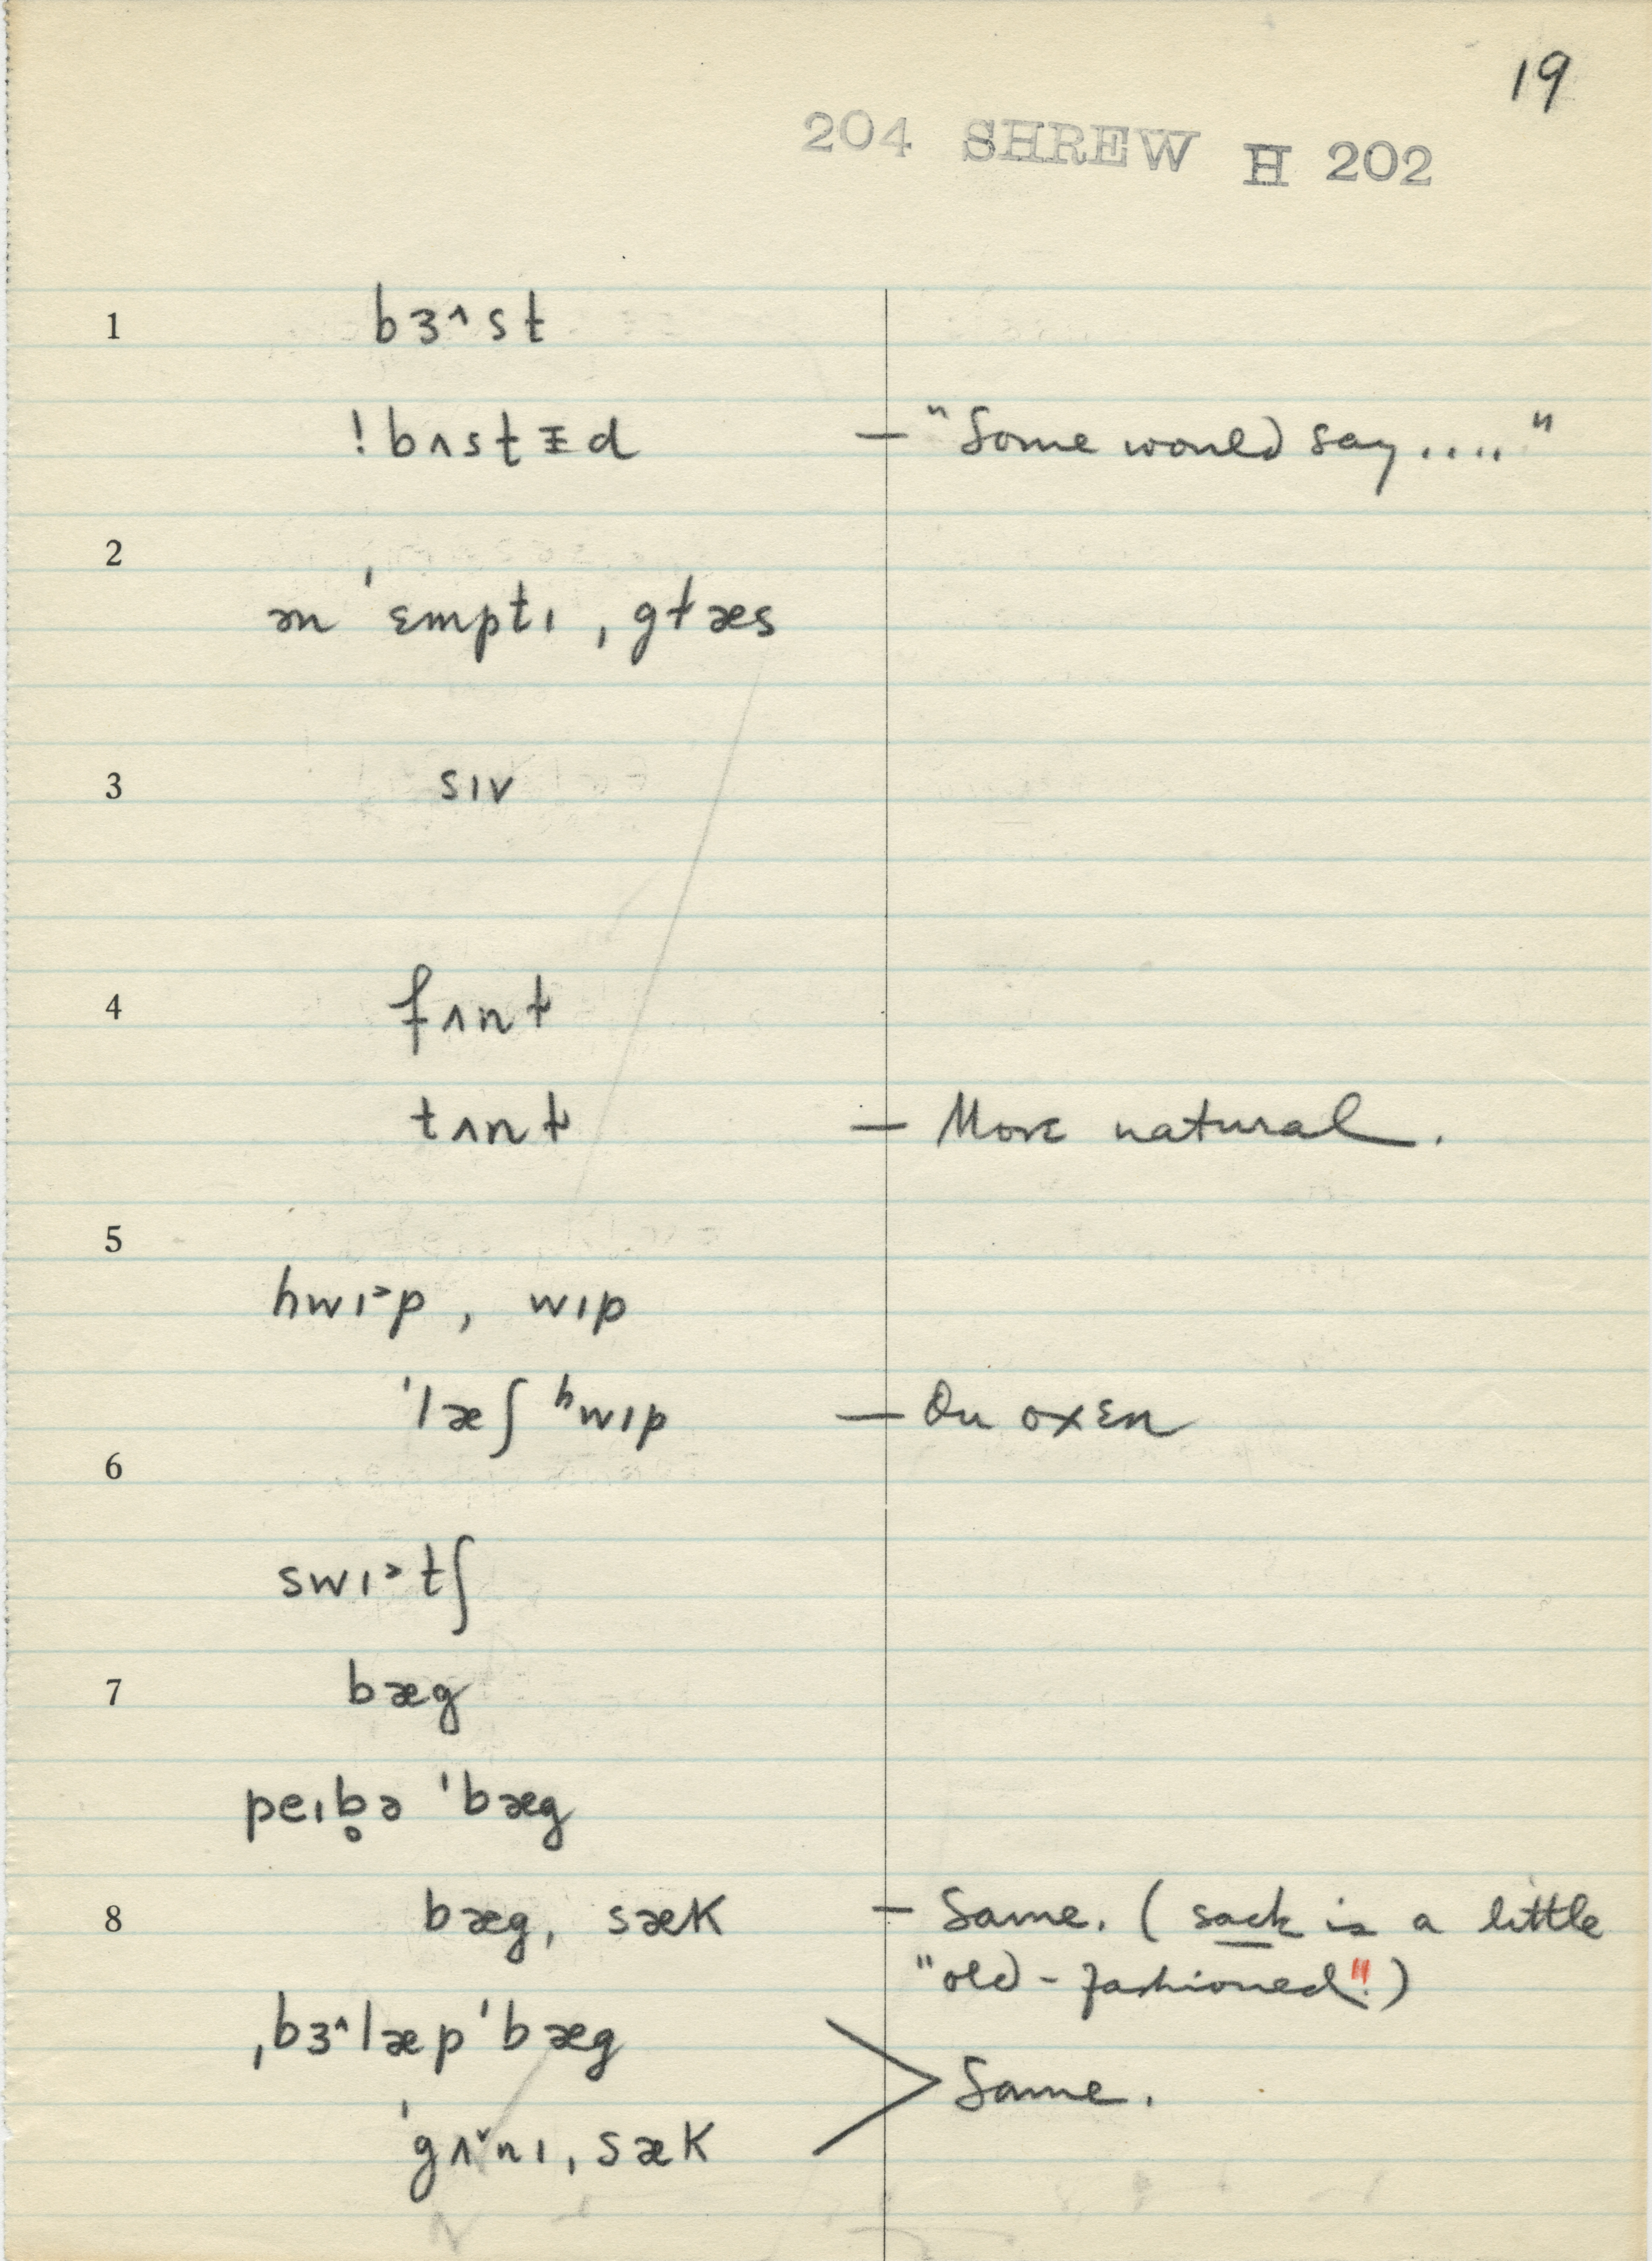 19
204 SHREW H 202
1 bɜ˄st
!bʌstɪ̵d — "Some would say...."
2
ən ˈɛmptɪ ˌgɫæs
3 sɪv
4 fʌnɫ
tʌnɫ — More natural.
5
hwɪ˃p, wɪp
ˈlæʃ ʰwɪp — On oxen
6
swɪ˃tʃ
7 bæg
peɪb̥ə ˈbæg
8 bæg, sæk — Same. (sack is a little
"old-fashioned"!)
ˌbɜ˄læpˈbæg
ˈgʌ˅nɪˌsæk > Same.